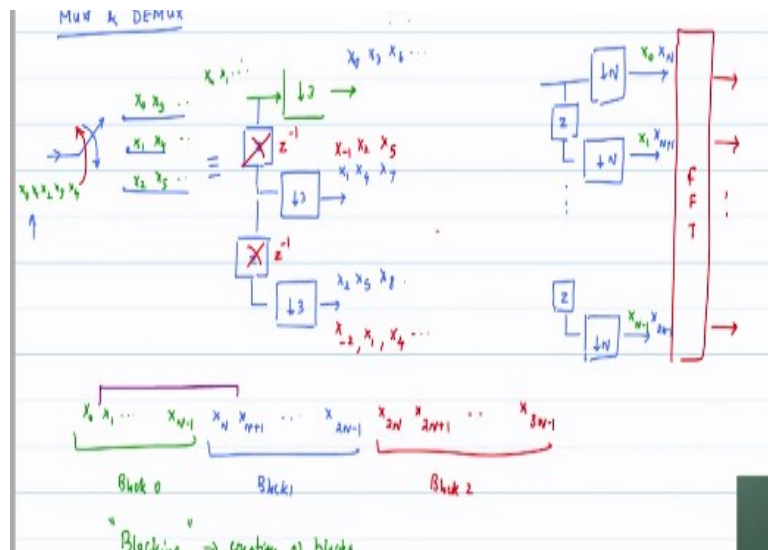 MUX & DEMUX
x₀ x₃ ..
x₁ x₄ ..
x₂ x₅ ..
x₀ x₁ x₂ x₃ x₄
≡
x₀ x₁ ...
↓3
x₀ x₃ x₆ ...
z z⁻¹
x₋₁ x₂ x₅
↓3
x₁ x₄ x₇
z z⁻¹
↓3
x₂ x₅ x₈ ..
x₋₂, x₁, x₄ ...
↓N
x₀ x_N
z
↓N
x₁ x_{N+1}
z
↓N
x_{N-1}
FFT
x₀ x₁ ... x_{N-1} x_N x_{N+1} ... x_{2N-1} x_{2N} x_{2N+1} .. x_{3N-1}
Block 0 Block 1 Block 2
"Blocking" → creation of blocks